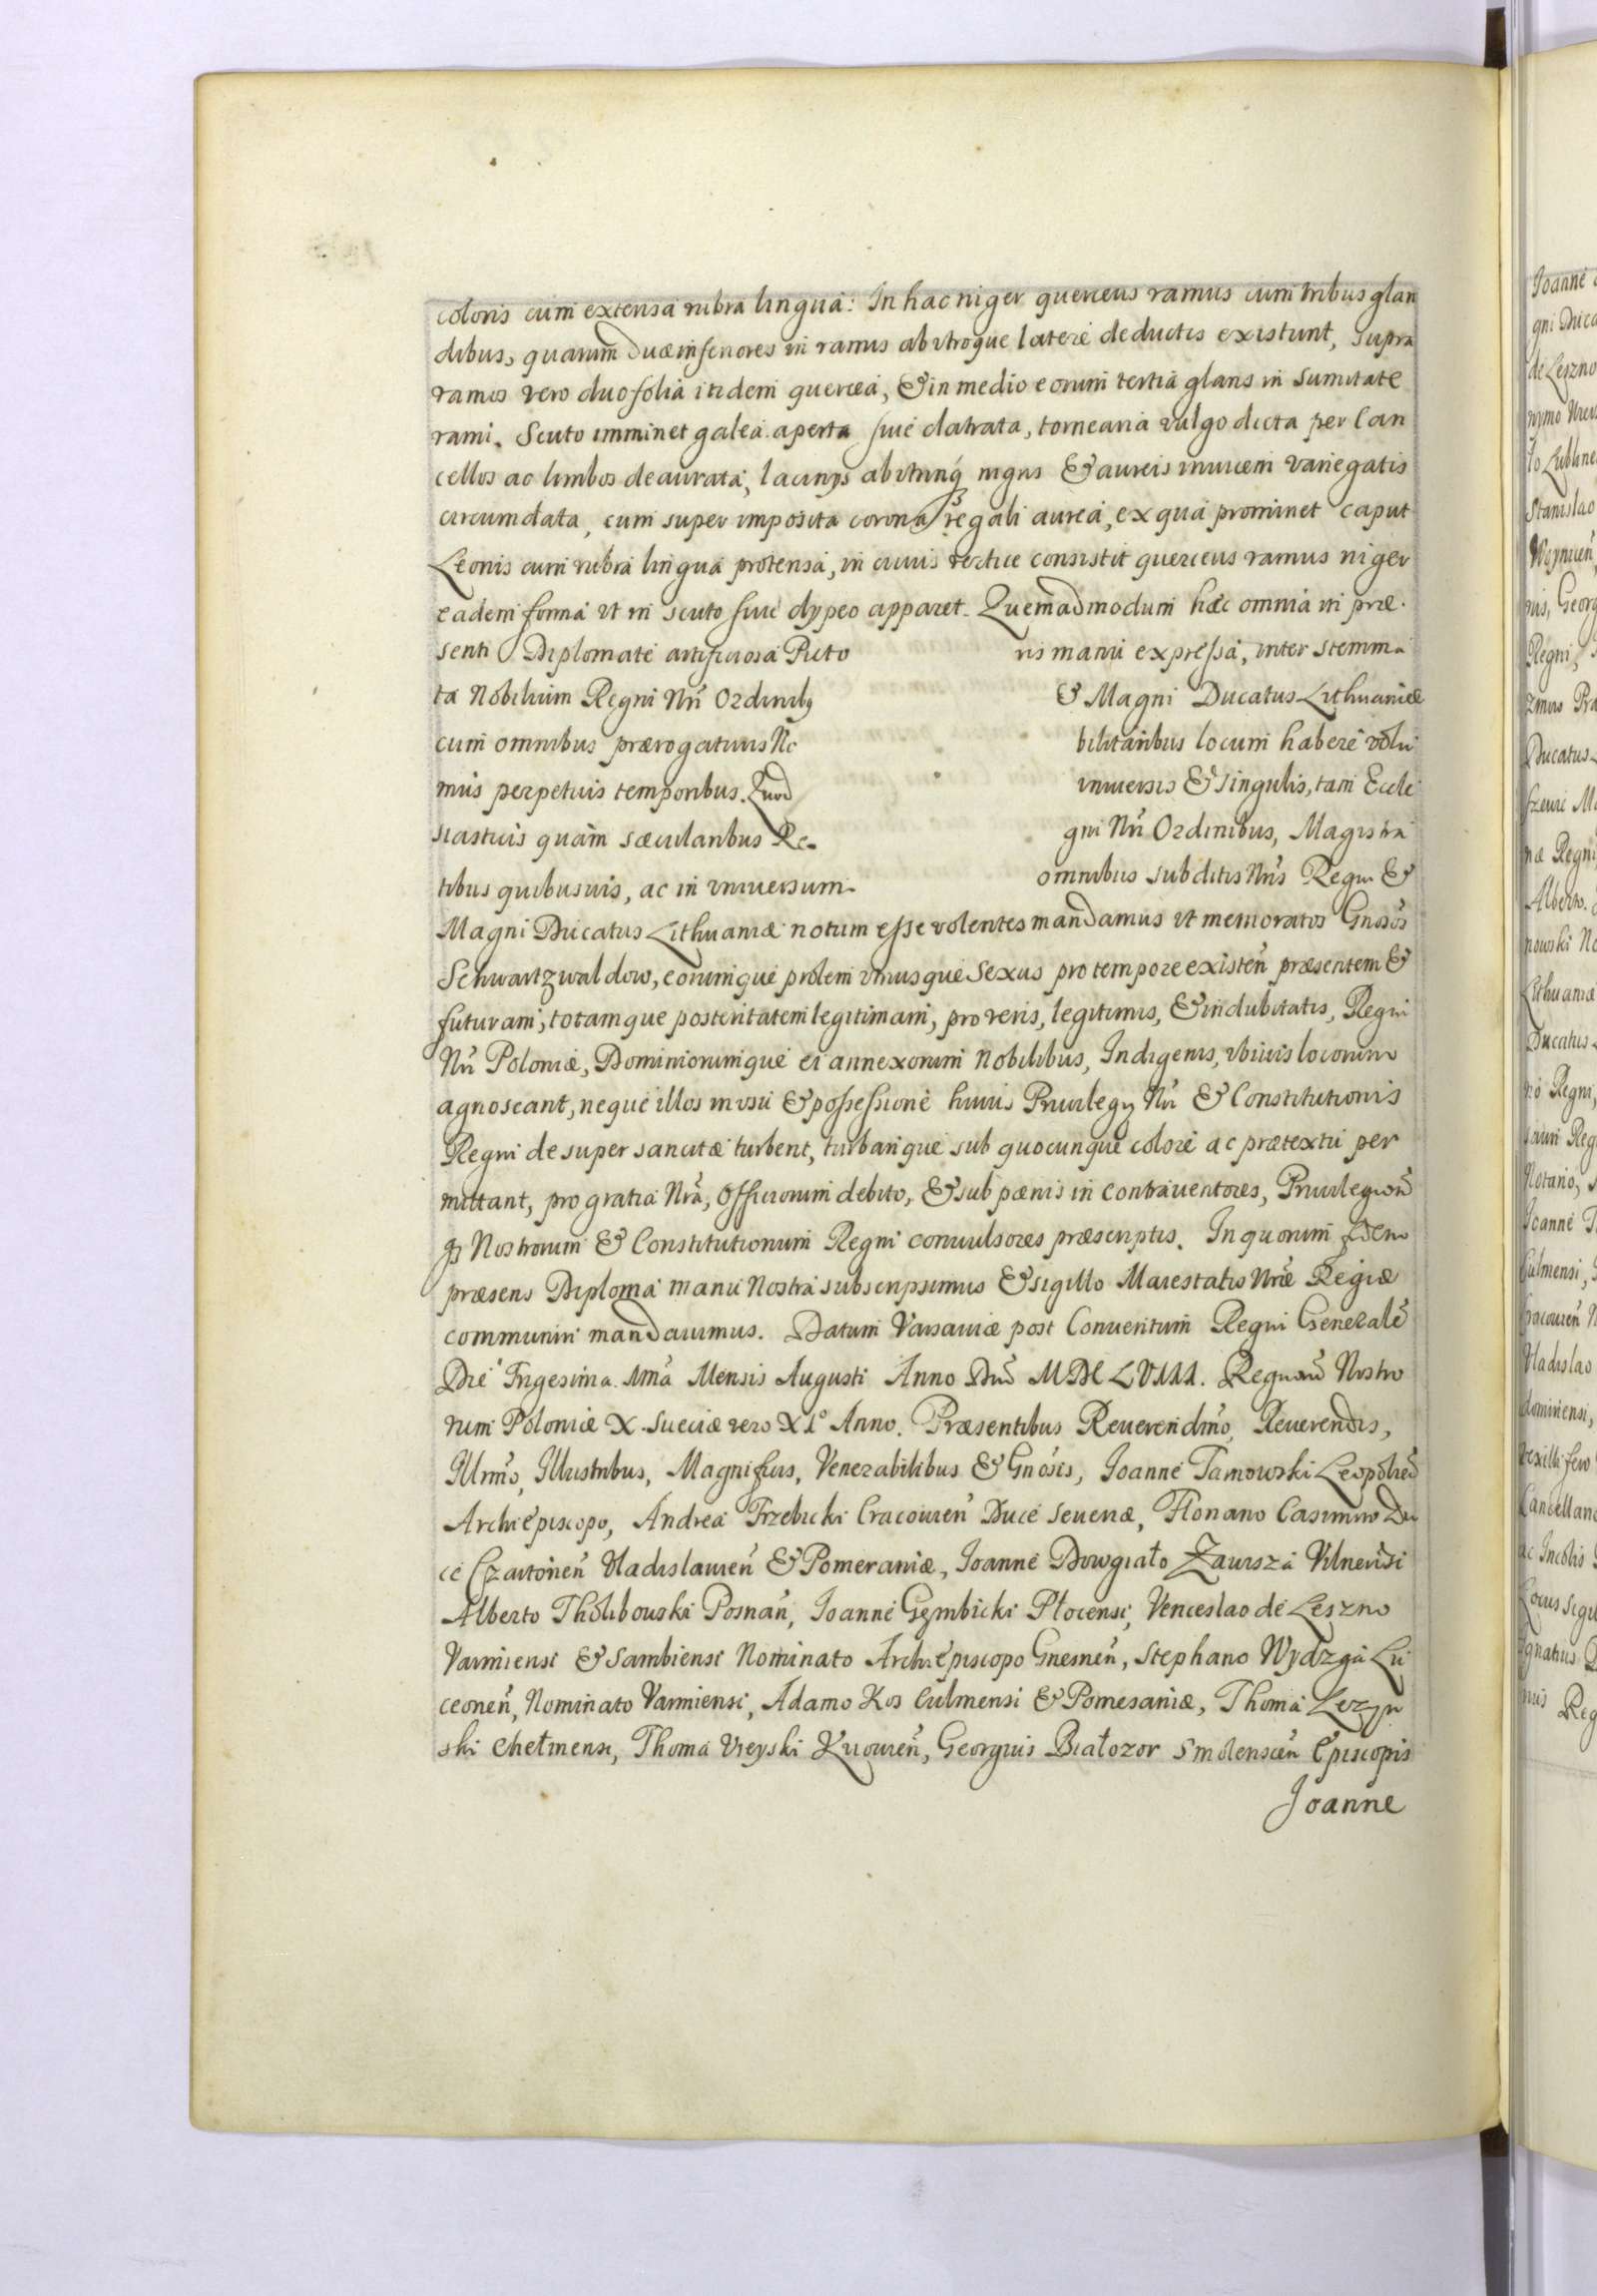 coloris cum extensa rubra lingua: In hac niger querceus ramus cum tribus glan
dibus, quarum duæ inferiores in ramis ab vtroque latere deductis existunt, supra
ramos vero duo folia itidem quercea, & in medio eorum tertia glans in sumitate
rami. Scuto imminet galea aperta sive clatrata, tornearia vulgo dicta per can
cellos ac limbos deaurata, lacinijs ab vtrinq; nigris & aureis inuicem variegatis
circumdata, cum super imposita corona regali aurea, ex qua prominet caput
Leonis cum rubra lingua protensa, in cuius vertice consistit querceus ramus niger
eadem forma vt in scuto siue clypeo apparet. Quemadmodum hæc omnia in præ.
senti Diplomate artificiosa Picto ris manu expressa, inter stemma
ta Nobilium Regni Nri Ordinib9 & Magni Ducatus Lithuaniæ
cum omnibus prærogatiuis No bilitaribus locum habere volu
mus perpetuis temporibus. Quod vniuersis & singulis, tam Eccle
siasticis quam sæcularibus Re- gni Nri Ordinibus, Magistra
tibus quibusuis, ac in vniuersum omnibus subditis Nris Regni &
Magni Ducatus Lithuaniæ notum esse volentes mandamus vt memoratos Gnosos
Schwartzwaldow, eorumque prolem vtriusque Sexus pro tempore existen præsentem &
futuram, totamque posteritatem legitimam, pro veris, legitimis, & indubitatis, Regni
Nri Poloniæ, Dominiorumque ei annexorum Nobilibus, Indigenis, vbiuis locorum
agnoscant, neque illos in vsu & possessione huius Priuilegij Nri & Constitutionis
Regni de super sancitæ turbent, turbarique sub quocunque colore ac prætextu per
mittant, pro gratia Nra, Officiorum debito, & sub pænis in contrauentores, Priuilegiorũ
q; Nostrorum & Constitutionum Regni conuulsores præscriptis. In quorum fidem
præsens Diploma manu Nostra subscripsimus & sigillo Maiestatis Nræ Regiæ
communiri mandauimus. Datum Varsauiæ post Conuentum Regni Generalẽ
Die Trigesima Ima Mensis Augusti Anno Dni MDCLVIII. Regnorũ Nostro
rum Poloniæ X. Sueciæ vero XI° Anno. Præsentibus Reuerendmo, Reuerendis,
Illrmo, Illustribus, Magnificis, Venerabilibus & Gnosis, Joanne Tarnowski Leopolieñ
Archiepiscopo, Andrea Trzebicki Cracouieñ Duce Seueriæ, Floriano Casimiro Du
ce Czartorieñ Vladislauieñ & Pomeraniæ, Joanne Dowgiało Zawisza Vilnensi
Alberto Tholibowski Posnañ, Joanne Gembicki Płocensi, Venceslao de Leszno
Varmiensi & Sambiensi Nominato Archiepiscopo Gnesneñ, Stephano Wydzga Lu
ceoneñ, Nominato Varmiensi, Adamo Kos Culmensi & Pomesaniæ, Thoma Lezyn
ski Chełmensi, Thoma Vieyski Kiiouieñ, Georgius Białozor Smolensceñ Episcopis
Joanne